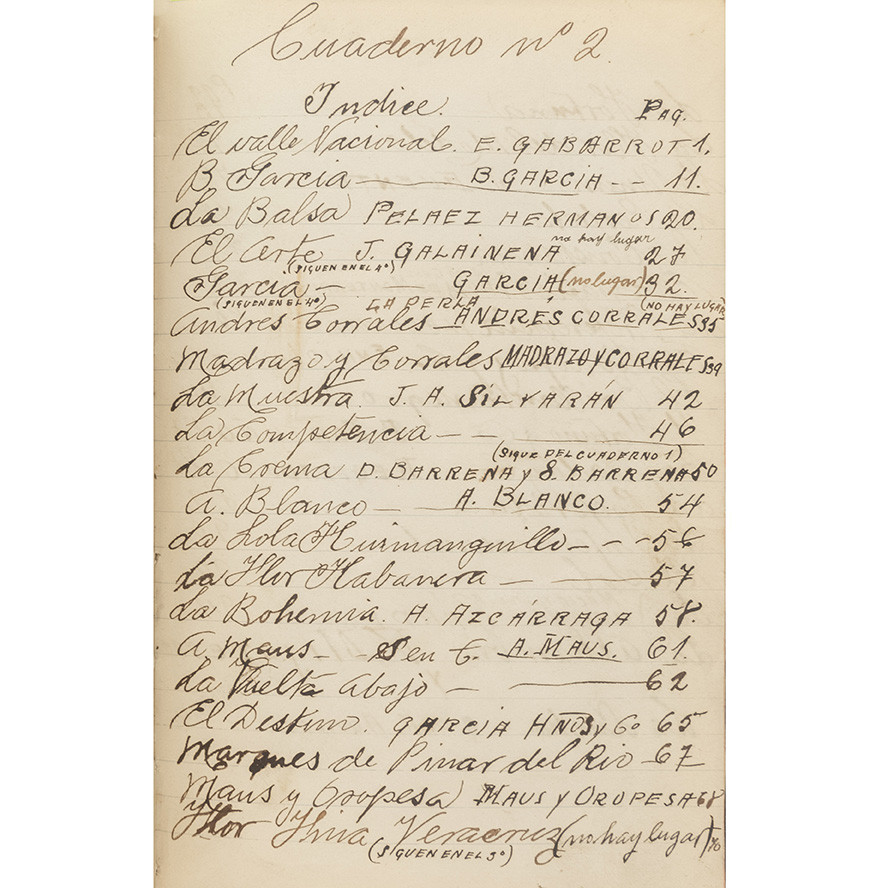 Cuaderno nº 2.
Indice. PAG.
El valle Nacional. E. GABARROT 1.
B. Garcia — B. GARCIA -- 11.
La Balsa PELAEZ HERMANOS 20.
no hay lugar
El Arte J. GALAINENA 27
(SIGUEN EN EL 4º)
Garcia - - GARCIA (no lugar) 32.
(SIGUEN EN EL 4º) LA PERLA (NO HAY LUGAR
Andres Corrales ANDRÉS CORRALES 35
Madrazo y Corrales MADRAZO Y CORRALES 39
La Muestra. J. A. SILVARÁN 42
La Competencia - - 46
(SIGUE DEL CUADERNO 1)
La Crema D. BARRENA y S. BARRENA 50
A. Blanco - A. BLANCO. 54
La Lola Huimanguillo - - - 56
La Flor Habanera - — 57
La Bohemia. A. AZCÁRRAGA 58.
A Maus - - S en C. A. MAUS. 61.
La Vuelta Abajo - — 62
El Destino. GARCIA HNOS y Cº 65
Marques de Pinar del Rio - 67
Maus y Oropesa MAUS Y OROPESA 68
Flor Fina Veracruz (no hay lugar) 70
(SIGUEN EN EL 3º)